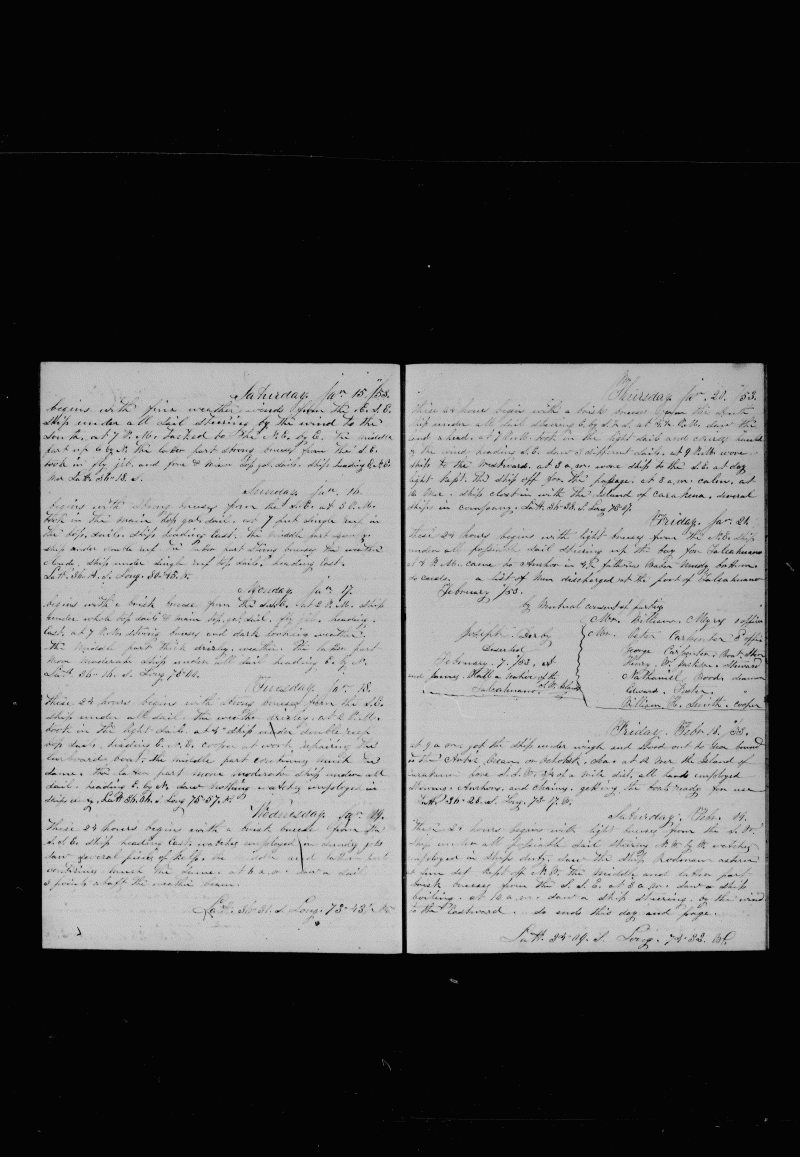 Saturday. Jan. 15 /53.
begins with fine weather, winds from the E. S. E.
ship under all sail steering by the wind to the
South, at 7 P. M. tacked to the N. E. by E. The middle
part up E by N. The later part strong breeses from the S. E.
took in fly jib. and fore & main top gal. sails. ship heading E. N. E.
Lat. 36-18. S.
Sunday Jan. 16.
begins with strong breeses from the S. E. at 3 P. M.
took in the main top gal. sail. at 7 put single reef in
the top, sails. ship heading East. the middle part
ship under double reef. The later part strong breeses the weather
clear. ship under single reef top sails. heading East.
Monday. Jan. 17.
begins with a brisk breese from the S. S. E. at 2 P. M. ship
under whole top sails & main top gal. sail. fly jib. heading.
East. at 7 P. M. strong breeses and dark looking weather.
the middle part thick drizzly. weather. The latter part
more moderate ship under all sail heading E. by N.
Latt. 36-14. S. Long 78-04.
Tuesday. Jan. 18.
These 24 hours begins with strong breeses from the S. E.
ship under all sail. the weather drizley. at 2 P. M.
took in the light sails. at 4 ship under double reef
top sails. heading E. N. E. cooper at work repairing the
larboard boat. the middle part continues much the
same. The latter part more moderate ship under all
sail. heading E. by N. saw nothing watches employed in
ships duty. Latt. 36.36. S. Long 75-57. W.
Wednesday. Jan. 19.
These 24 hours begins with a brisk breese from the
S. S. E. ship heading East. watches employed in sundry jobs
saw several pieces of kelp. the middle and latter part
continues much the same. at 6 a. m. saw a sail
3 points abaft the weather beam.
Latt. 36-31. S. Long. 73-43. W.
Thursday. Jan. 20. /53.
These 24 hours begin with a brisk breese from the South
ship under all sail steering E. by S. ½ S. at 4½ P. M. saw the
land ahead. at 7 P. M. took in the light sails and
of the wind heading S. E. saw 3 different sails. at 9 P. M. wore
ship to the Westward. at 3 a. m. wore ship to the S. E. at day
light kept the ship off for the passage. at 8 a. m. calm. at
12 Mer. ship close in with the Island of Carakena. several
ships in company. Latt. 36-38. S. Long 73-07.
Friday. Jan. 21.
these 24 hours begins with light breeses from the N. E. ship
under all possible sail steering up the bay for Talcahuano
at 4 P. M. came to anchor in 4½ fathoms water muddy bottom
so ends. a list of men discharged at the port of Talcahuano
February /53.
by mutual consent of parties
Mr. William. Myrs officer
Mr. Peter Carpenter 3 officer
George Carpenter. Boat. Steer
Henry. W. Jackson. Steward
Nathaniel Woods seaman
Edward. Foster. "
William H. Smith. cooper
Joseph Derby
Deserted
February. 7. /53. at
and James. Hall a native of the
Talcahuano. of W. Islands
Friday. Feby. 18. /53.
at 9 a. m. got the ship under weigh and stood out to Sea bound
to the Arctic Ocean or Ochotsk. Sea. at 12 Mer the Island of
Carakena bore S. S. W. ½ W. 5 mile dist. all hands employed
stowing Anchors, and Chains. getting the boats ready for use
Latt. 36-28. S. Long. 73-17. W.
Saturday. Feby. 19.
These 24 hours begins with light breeses from the S. W.
ship under all possible sail steering N. W. by W. watches
employed in ships duty. saw the Ship Rodman astern
at sun set kept off N. W. the middle and later part
brisk breeses from the S. S. E. at 8 a. m. saw a ship
boiling. at 12 a. m. saw a ship steering. by the wind
to the Eastward. so ends this day and page.
Latt. 34-49. S. Long. 74-32. W.